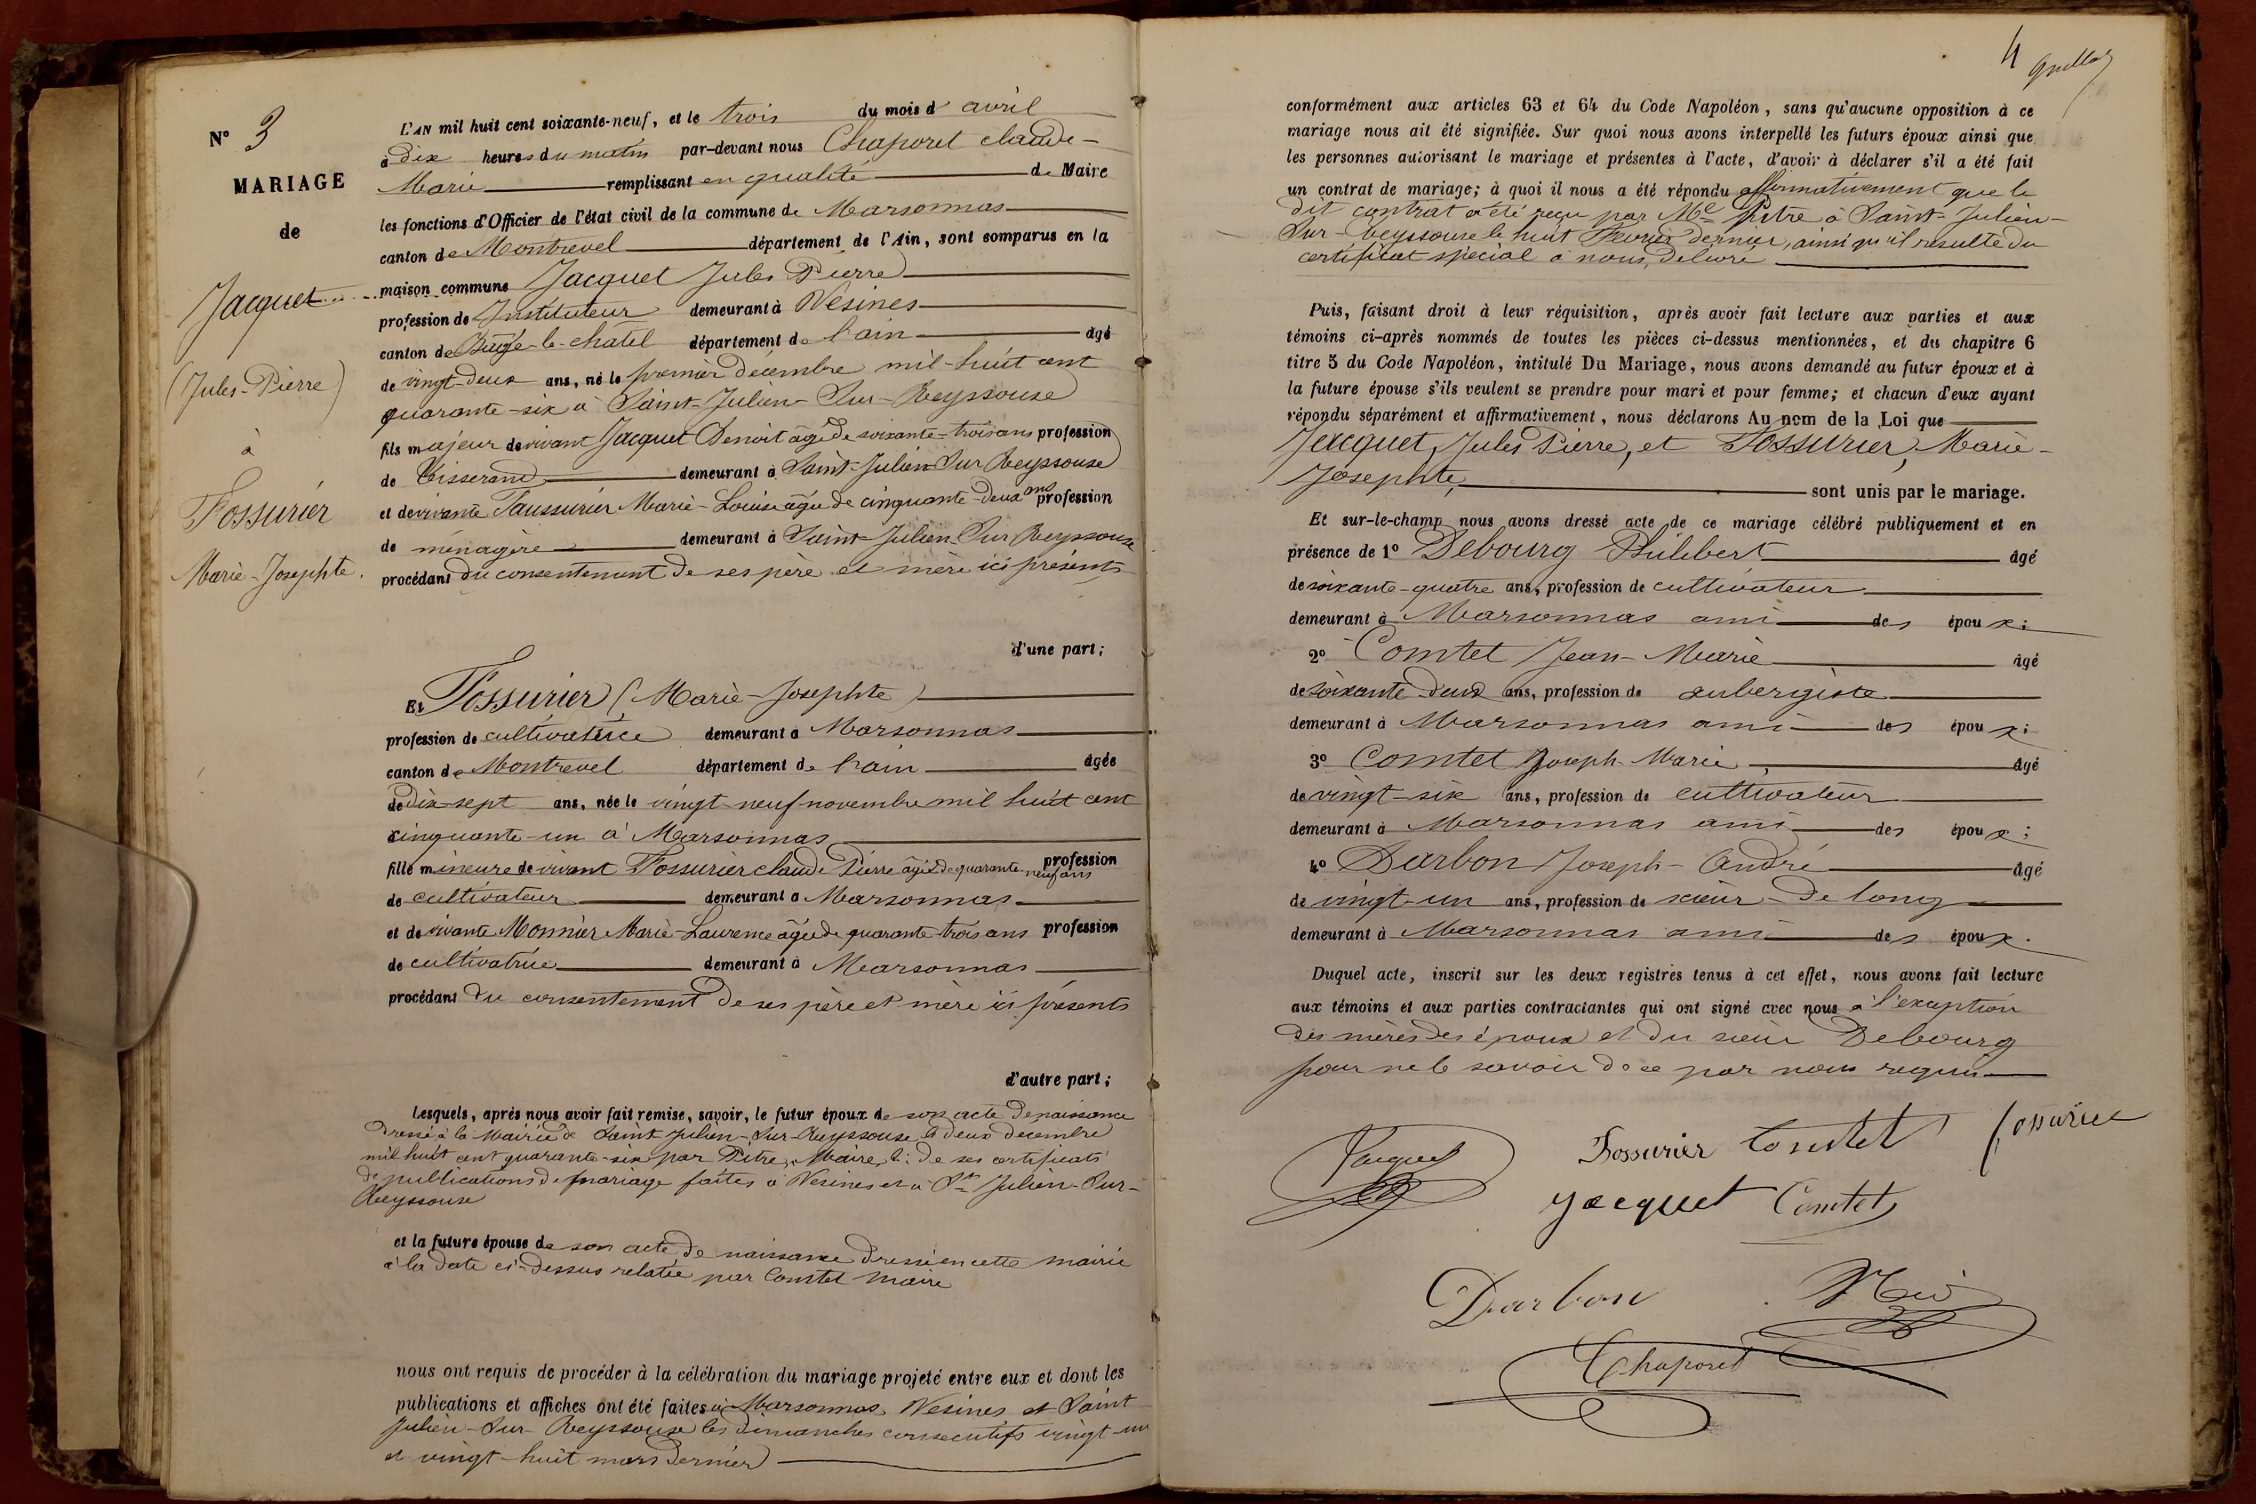 N° 3
MARIAGE
de
Jacquet
(Jules-Pierre)
à
Fossurier
Marie-Josephte.
L'AN mil huit cent soixante-neuf, et le trois du mois d' avril
à dix heures du matin par-devant nous Chaporel claude-
Marie remplissant en qualité de Maire
les fonctions d'Officier de l'état civil de la commune de Marsonnas
canton de Montrevel département de l'Ain, sont comparus en la
maison commune Jacquet Jules Pierre
profession de Instituteur demeurant à Vésines
canton de Bâgé-le-chatel département de l'ain âgé
de vingt-deux ans, né le premier décembre mil-huit cent
quarante-six à Saint-Julien-Sur-Reyssouse
fils majeur de vivant Jacquet Benoit âgé de soixante-trois ans profession
de Tisserand demeurant à Saint-Julien Sur Reyssouse
et de vivante Faussurier Marie-Louise âgée de cinquante-deux ans profession
de ménagère demeurant à Saint-Julien Sur Reyssouse
procédant du consentement de ses père et mère ici présents
d'une part;
Et Fossurier (Marie-Josephte)
profession de cultivatrice demeurant à Marsonnas
canton de Montrevel département de l'ain âgée
de dix-sept ans, née le vingt-neuf novembre mil huit cent
cinquante-un à Marsonnas
fille mineure de vivant Fossurier claude Pierre âgé de quarante neuf ans profession
de cultivateur demeurant à Marsonnas
et de vivante Monnier Marie-Laurence âgée de quarante-trois ans profession
de cultivatrice demeurant à Marsonnas
procédant du consentement de ses père et mère ici présents
d'autre part;
Lesquels, après nous avoir fait remise, savoir, le futur époux de son acte de naissance
dressé à la Mairie de Saint Julien-Sur-Reyssouse le deux décembre
mil huit cent quarante-six par Pitre, Maire, 2: de ses certificats
de publications de mariage faites à Vésines et à St Julien-Sur-
Reyssouse
et la future épouse de son acte de naissance dressé en cette mairie
à la date ci-dessus relatée par Comtet maire
nous ont requis de procéder à la célébration du mariage projeté entre eux et dont les
publications et affiches ont été faites à Marsonnas, Vésines et Saint
Julien-Sur-Reyssouse les dimanches consecutifs vingt-un
et vingt-huit mars dernier
4
conformément aux articles 63 et 64 du Code Napoléon, sans qu'aucune opposition à ce
mariage nous ait été signifiée. Sur quoi nous avons interpellé les futurs époux ainsi que
les personnes autorisant le mariage et présentes à l'acte, d'avoir à déclarer s'il a été fait
un contrat de mariage; à quoi il nous a été répondu affirmativement que le
dit contrat a été reçu par Me Pitre à Saint-Julien-
Sur-Reyssouse le huit Fevrier dernier, ainsi qu'il résulte du
certificat spécial à nous délivré
Puis, faisant droit à leur réquisition, après avoir fait lecture aux parties et aux
témoins ci-après nommés de toutes les pièces ci-dessus mentionnées, et du chapitre 6
titre 5 du Code Napoléon, intitulé Du Mariage, nous avons demandé au futur époux et à
la future épouse s'ils veulent se prendre pour mari et pour femme; et chacun d'eux ayant
répondu séparément et affirmativement, nous déclarons Au nom de la Loi que
Jacquet, Jules Pierre, et Fossurier, Marie-
Josephte, sont unis par le mariage.
Et sur-le-champ nous avons dressé acte de ce mariage célébré publiquement et en
présence de 1° Debourg Philibert âgé
de soixante-quatre ans, profession de cultivateur
demeurant à Marsonnas ami des époux:
2° Comtet Jean-Marie âgé
de soixante deux ans, profession de aubergiste
demeurant à Marsonnas ami des époux:
3° Comtet Joseph-Marie, âgé
de vingt-six ans, profession de cultivateur
demeurant à Marsonnas ami des époux:
4° Darbon Joseph-André âgé
de vingt-un ans, profession de scieur-de long
demeurant à Marsonnas ami des époux.
Duquel acte, inscrit sur les deux registres tenus à cet effet, nous avons fait lecture
aux témoins et aux parties contractantes qui ont signé avec nous à l'exception
des mères des époux et du sieur Debourg
pour ne le savoir de ce par nous requis
Jacquet Fossurier Comtet fossurier
Jacquet Comtet
Darbon
Chaporel